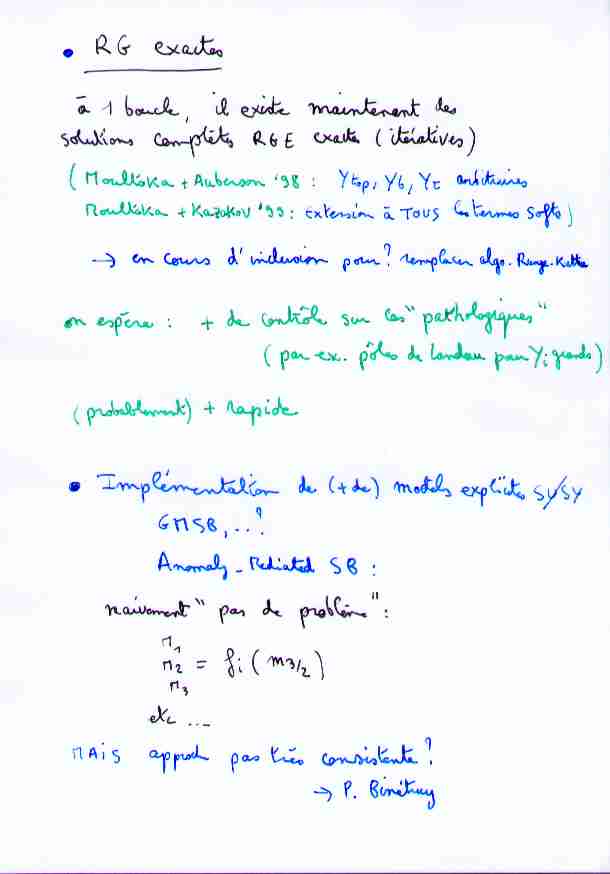 • RG exactes
à 1 boucle, il existe maintenant des
solutions complètes RGE exactes (itératives)
(Moultaka + Auberson '98 : Ytop, Yb, Yτ arbitraires
Moultaka + Kazakov '99 : Extension à TOUS les termes Softs)
→ en cours d'inclusion pour? remplacer algo. Runge-Kutta
on espère : + de contrôle sur cas "pathologiques"
(par ex. pôles de Landau pour Yi grands)
(probablement) + rapide
• Implémentation de (+ de) models explicites SUSY
GMSB, ..?
Anomaly-Mediated SB :
naïvement "pas de problème" :
M1
M2 = fi (m3/2)
M3
etc ...
MAIS approch pas très consistente?
→ P. Binétruy